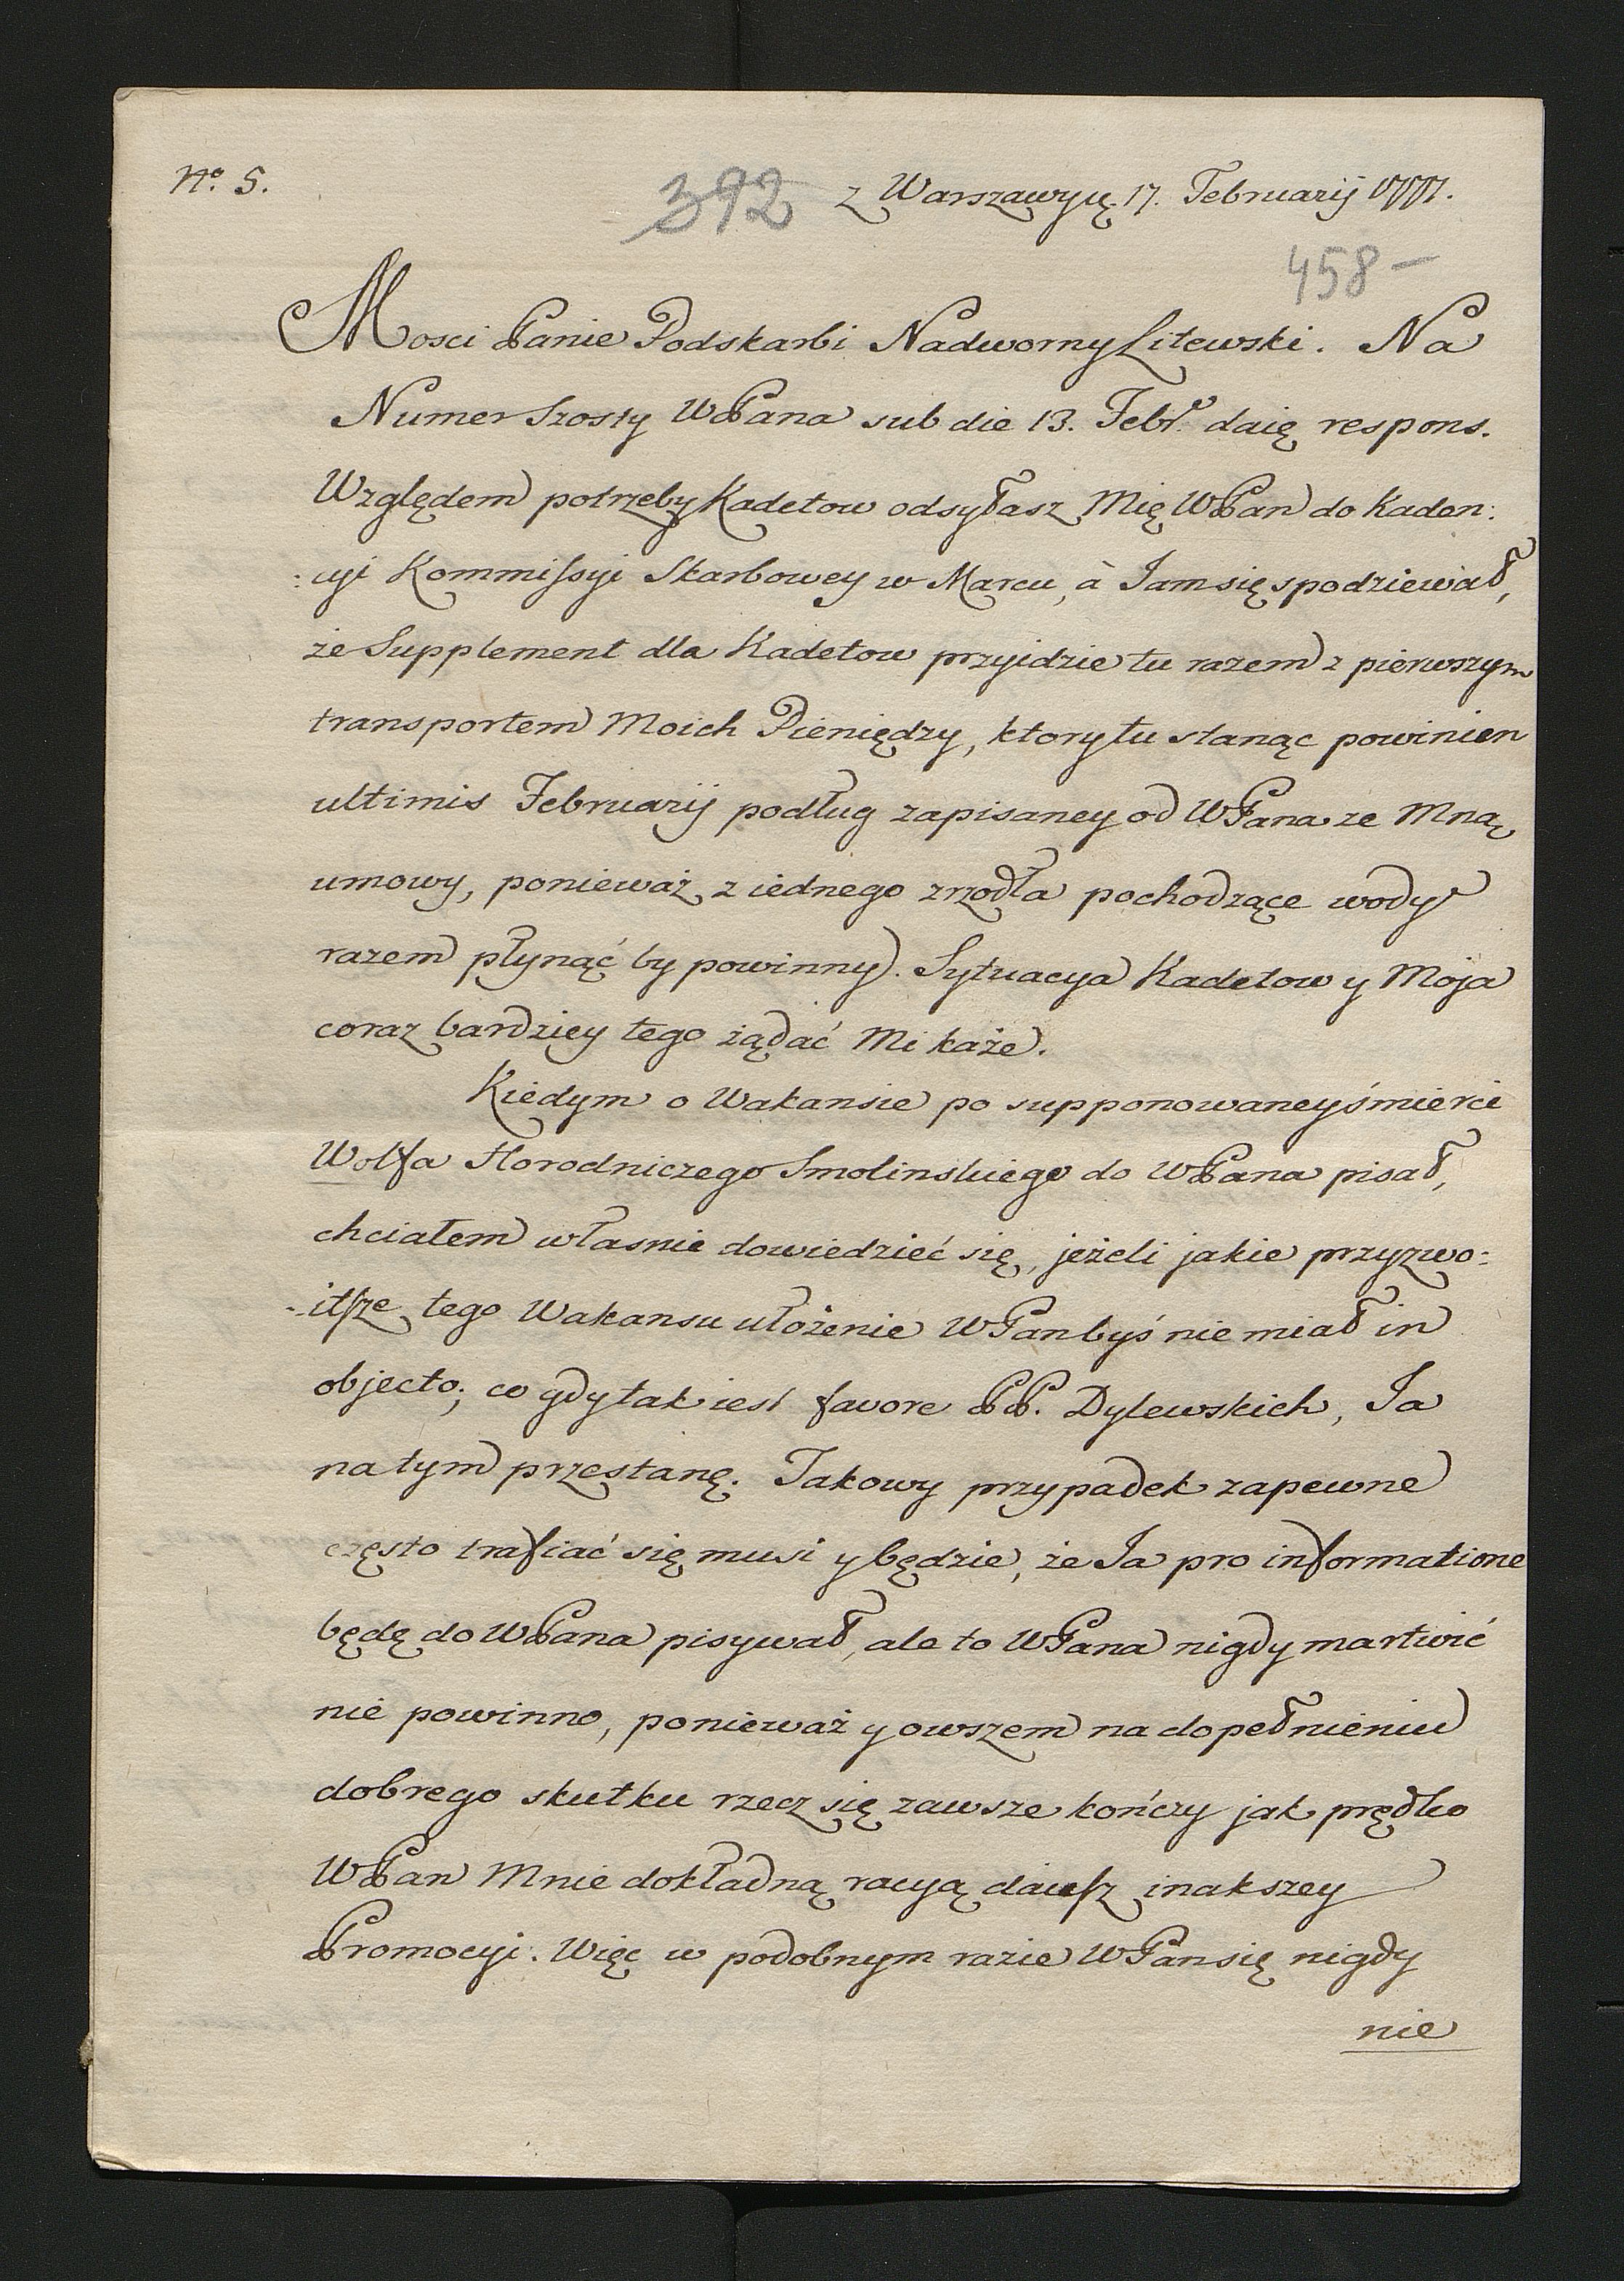 No. 5.
392 z Warszawy 17. Februarij 1777.
458 –
Mosci Panie Podskarbi Nadworny Litewski. Na
Numer Szosty WPana sub die 13. Febr. daię respons.
Względem potrzeby Kadetow odsyłasz Mię WPan do Kaden:
:cyi Kommissyi Skarbowey w Marcu, à Jam się spodziewał,
że Supplement dla Kadetow przyidzie tu razem z pierwszym
transportem Moich Pieniędzy, ktory tu stanąc powinien
ultimis Februarij podług zapisaney od WPana ze Mną
umowy, ponieważ z iednego zrzodła pochodzące wody
razem płynąć by powinny. Sytuacya Kadetow y Moja
coraz bardziey tego żądać Mi każe.
Kiedym o Wakansie po supponowaney śmierci
Wolfa Horodniczego Smolinskiego do WPana pisał,
chciałem własnie dowiedzieć się, jeżeli jakie przyzwo:
:itsze tego Wakansu ułożenie WPan byś nie miał in
objecto; co gdy tak iest favore PP. Dylewskich, Ja
na tym przestanę. Takowy przypadek zapewne
często trafiać się musi y będzie, że Ja pro informatione
będę do WPana pisywał, ale to WPana nigdy martwić
nie powinno, ponieważ y owszem na dopełnieniu
dobrego skutku rzecz się zawsze kończy jak prędko
WPan Mnie dokładną racyą daiesz inakszey
Promocyi. Więc w podobnym razie WPan się nigdy
nie